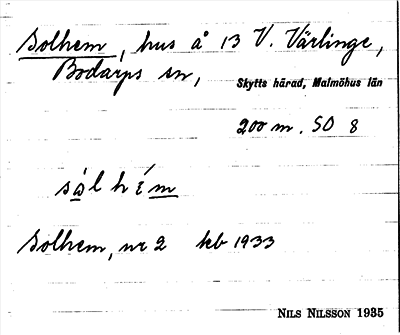 Solhem, hus å 13 V. Värlinge,
Bodarps sn,
Skytts härad, Malmöhus län
200 m. SO 8
sòl hém
Solhem, nr 2 kb 1933
NILS NILSSON 1935